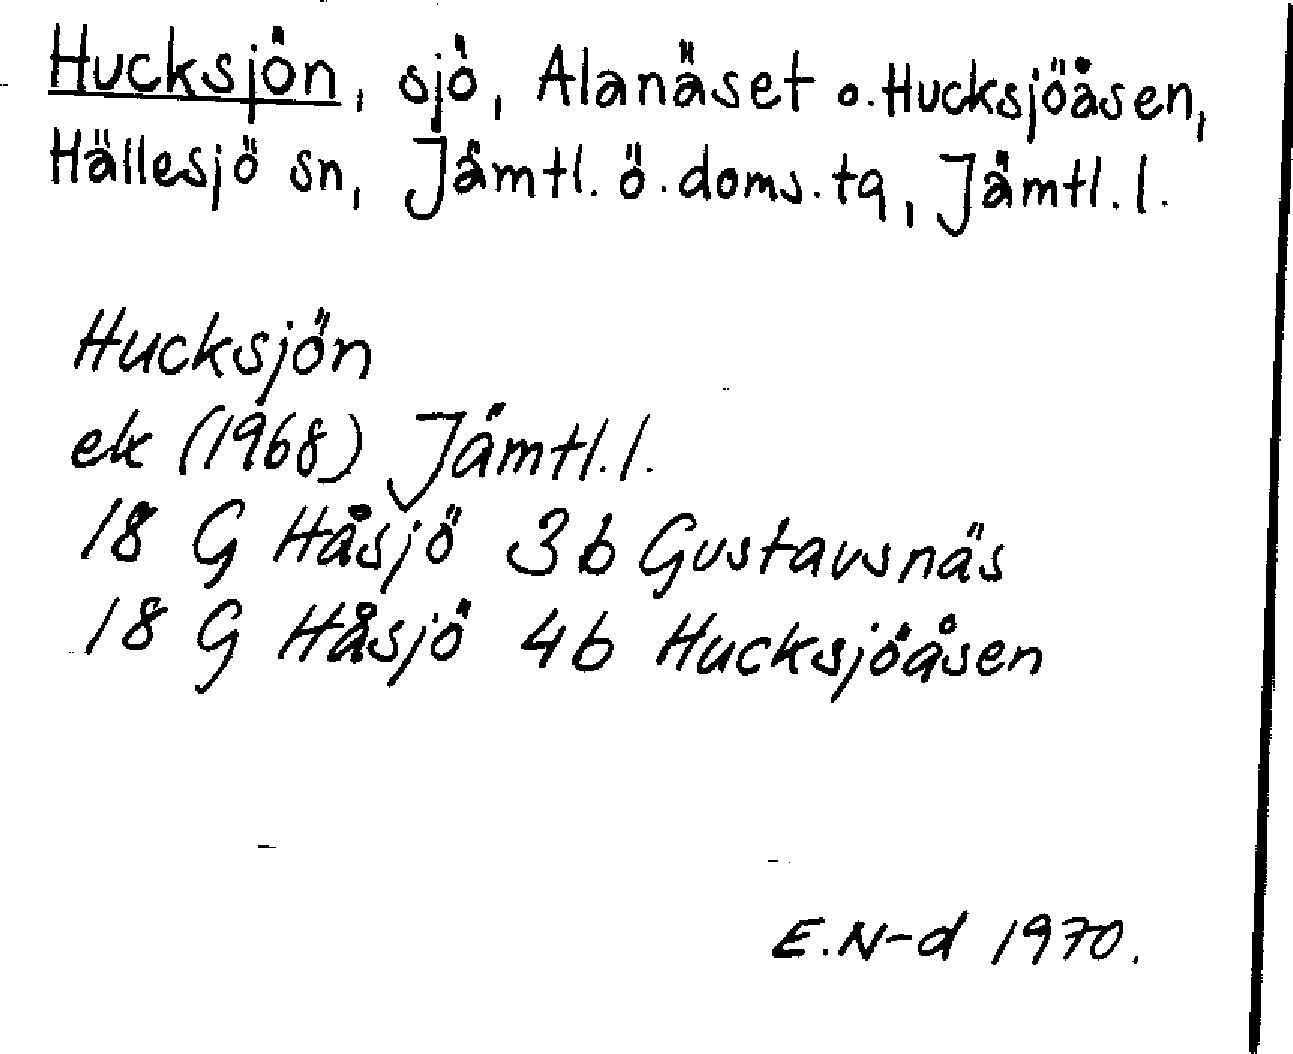 Hucksjön, sjö, Alanäset o. Hucksjöåsen,
Hällesjö sn, Jämtl. ö. doms. tg, Jämtl. l.
Hucksjön
ek (1968) Jämtl. l.
18 G Håsjö 3b Gustavsnäs
18 G Håsjö 4b Hucksjöåsen
E. N-d 1970.